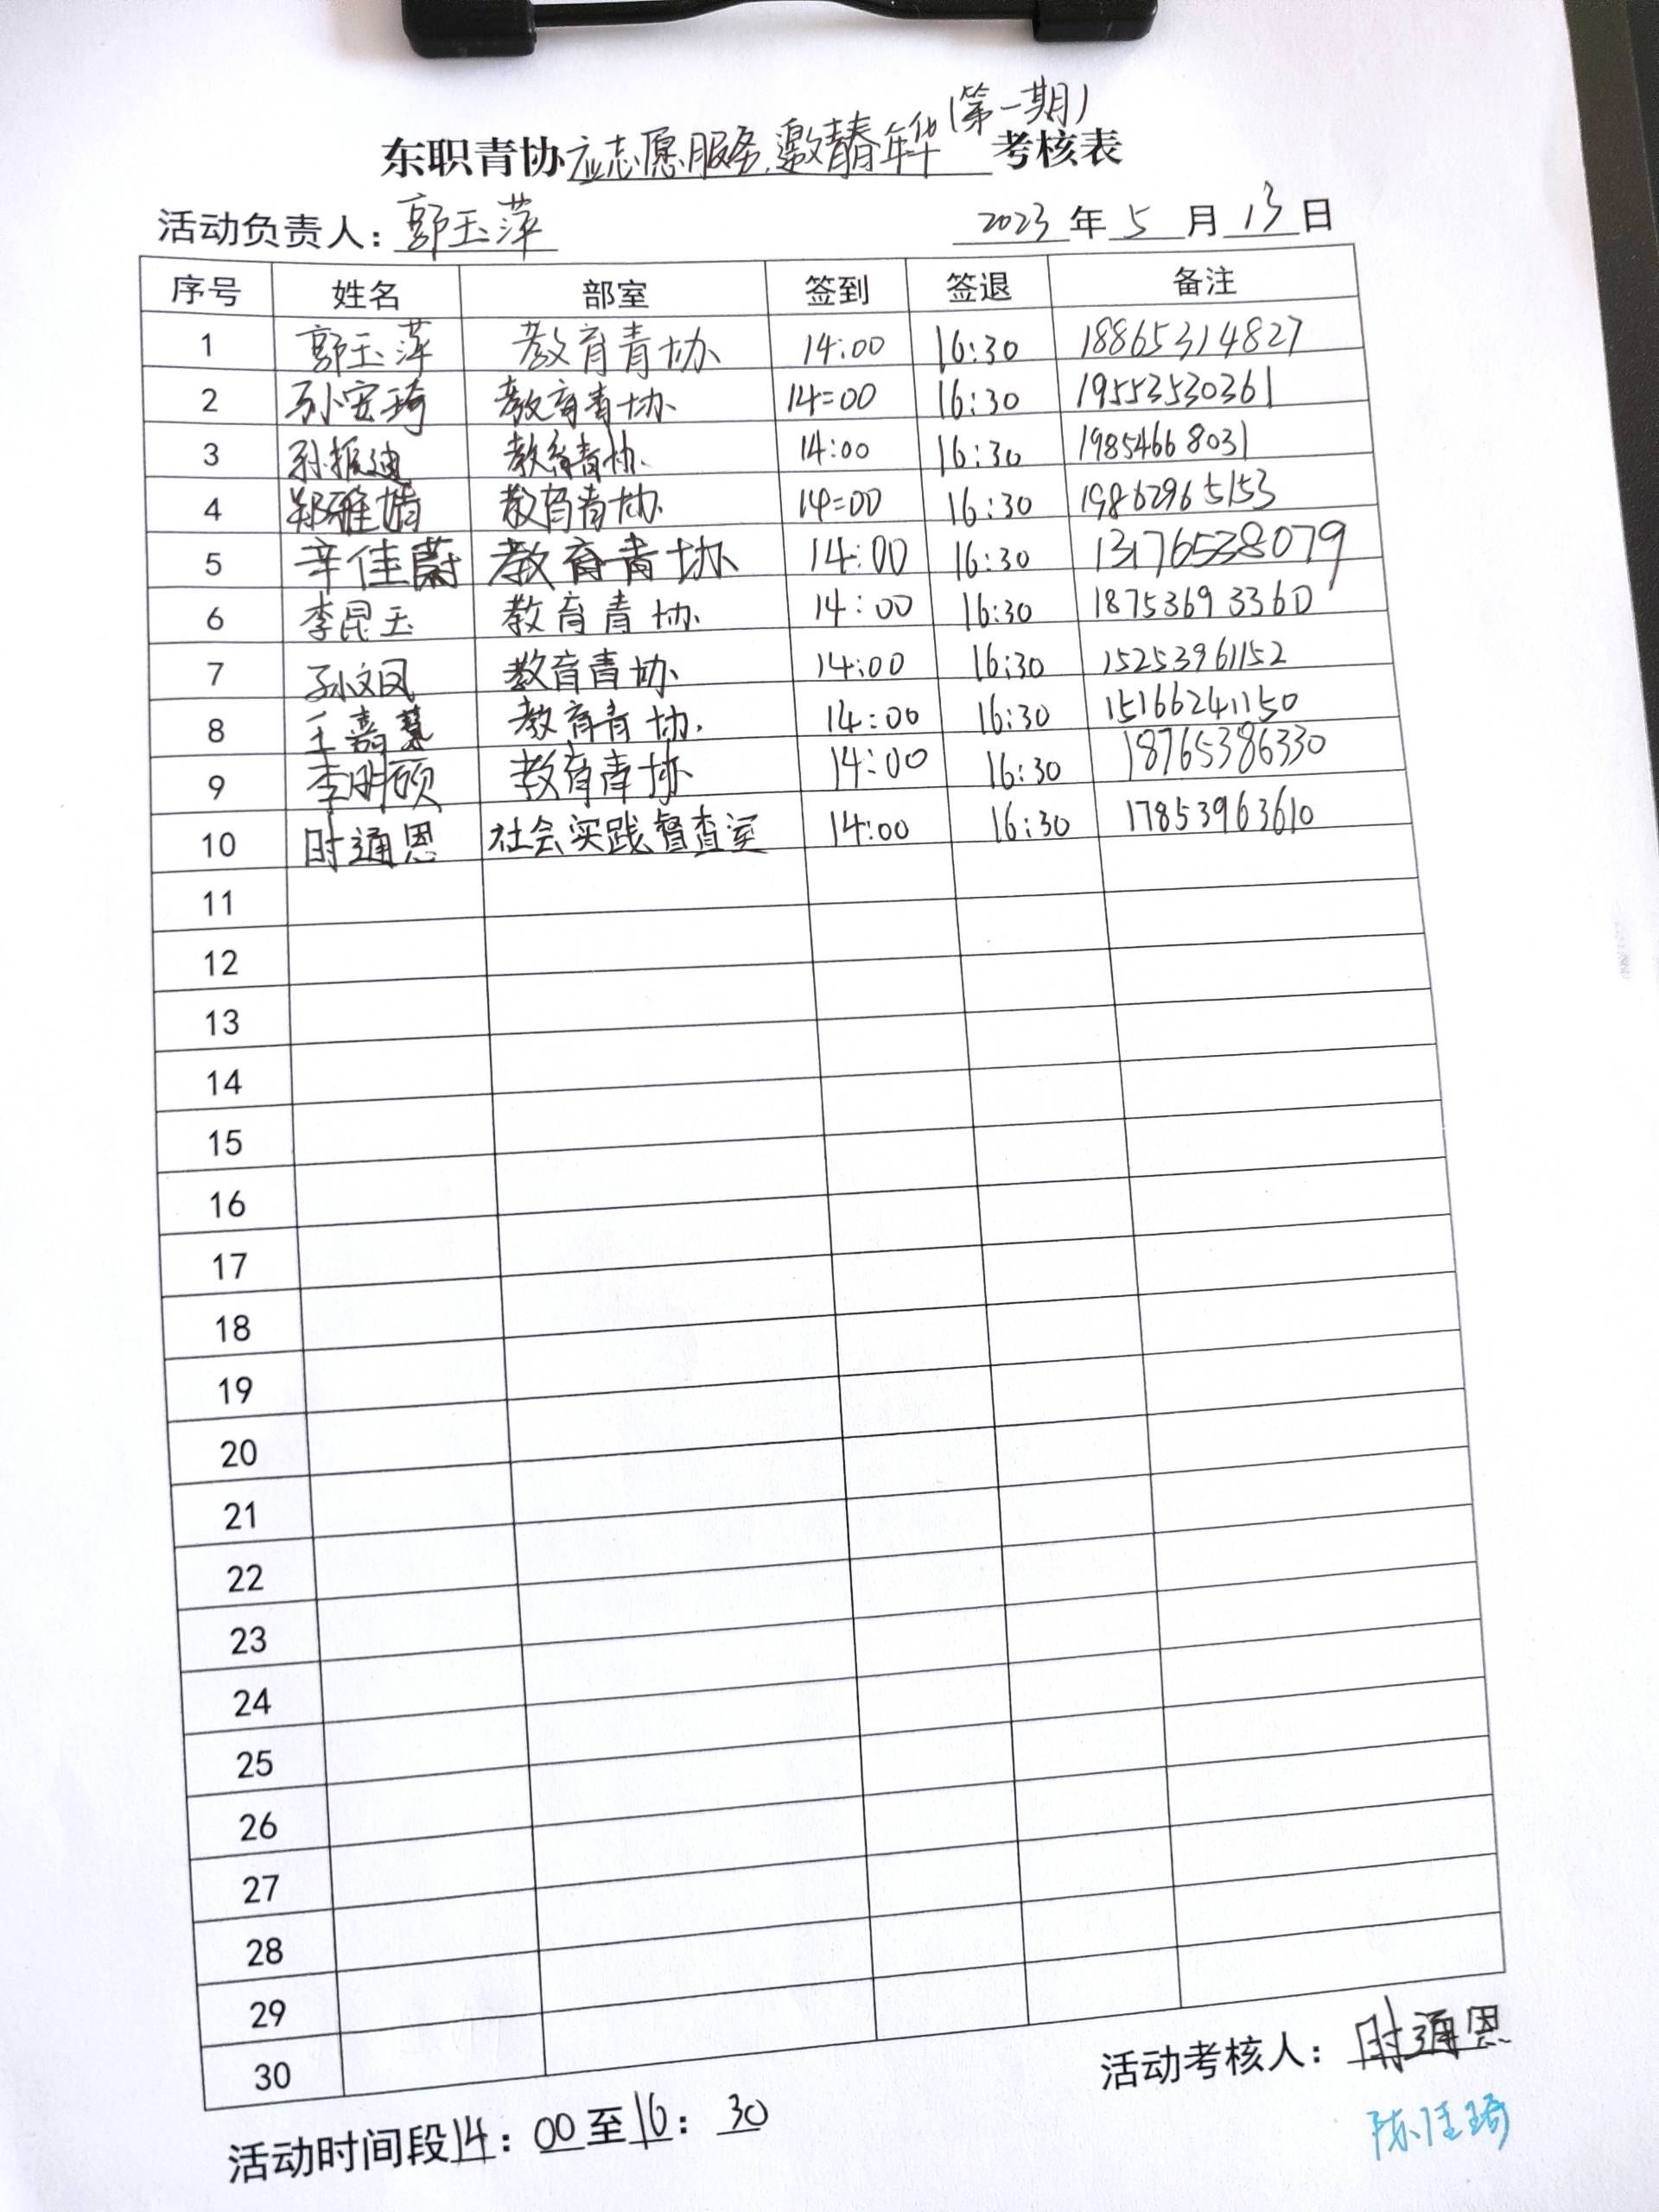 (第一期)
东职青协应志愿服务,邀青春年华考核表
活动负责人：郭玉萍 2023年5月13日
序号 姓名 部室 签到 签退 备注
1 郭玉萍 教育青协 14:00 16:30 18865314827
2 孙宏琦 教育青协 14:00 16:30 19553530361
3 孙振迪 教育青协 14:00 16:30 19854668031
4 郑雅婧 教育青协 14:00 16:30 19862965153
5 辛佳蔚 教育青协 14:00 16:30 13176538079
6 李昆玉 教育青协 14:00 16:30 18753693360
7 孙文凤 教育青协 14:00 16:30 15253961152
8 王嘉慧 教育青协 14:00 16:30 15166241150
9 李明硕 教育青协 14:00 16:30 18765386330
10 时通恩 社会实践督查室 14:00 16:30 17853963610
11
12
13
14
15
16
17
18
19
20
21
22
23
24
25
26
27
28
29
30
活动考核人：时通恩
陈佳琦
活动时间段14：00至16：30